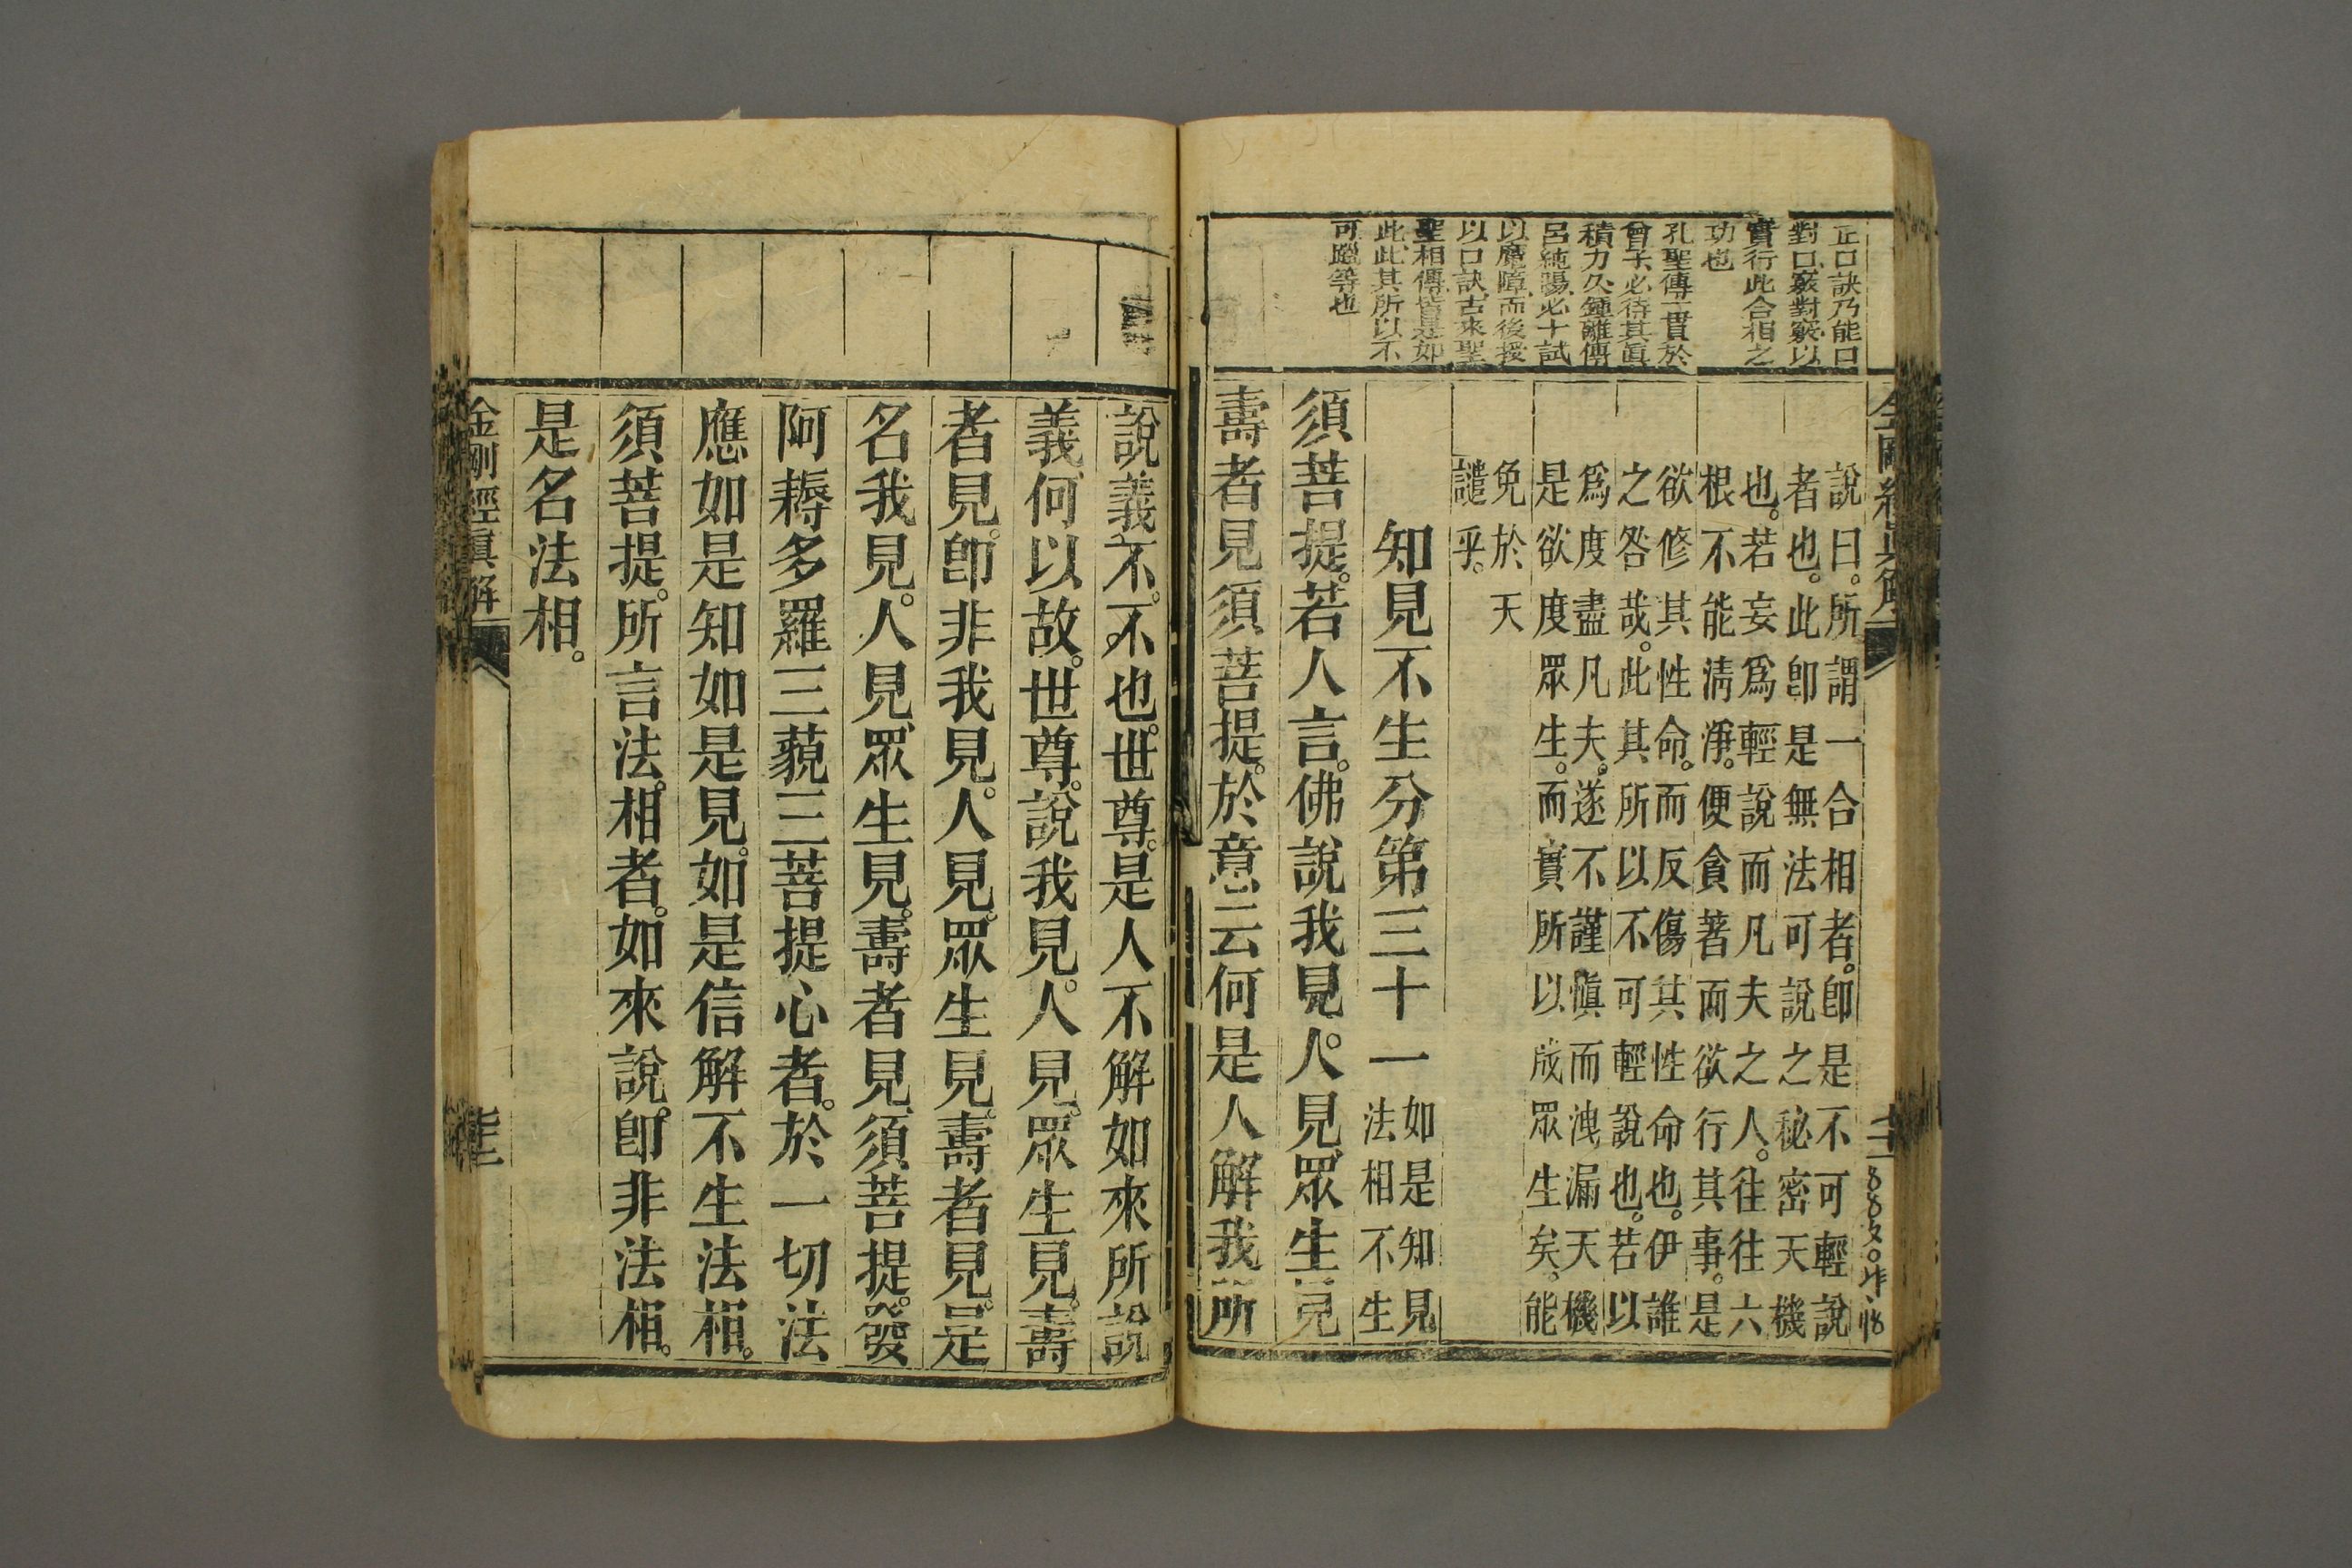 正口訣乃能口
對口竅對竅以
實行此合相之
功也
孔聖傳一貫於
曾子必待其眞
積力久鍾離傳
呂純陽必十試
以魔障而後授
以口訣古來聖
聖相傳皆是如
此此其所以不
可躐等也
金剛經眞解
說曰。所謂一合相者。卽是不可輕說
者也。此卽是無法可說之秘密天機
也。若妄爲輕說而凡夫之人。往往六
根不能淸淨。便貪著而欲行其事。是
欲修其性命。而反傷其性命也。伊誰
之咎哉。此其所以不可輕說也。若以
爲度盡凡夫。遂不謹愼而洩漏天機
是欲度眾生。而實所以戕眾生矣。能
免於天
譴乎。
知見不生分第三十一
如是知見
法相不生
須菩提。若人言。佛說我見。人見、眾生見
壽者見須菩提。於意云何是人解我所
說義不。不也。世尊。是人不解如來所說
義何以故。世尊。說我見。人見。眾生見。壽
者見。卽非我見。人見。眾生見。壽者見。是
名我見。人見、眾生見。壽者見須菩提。發
阿耨多羅三藐三菩提心者。於一切法
應如是知如是見。如是信解不生法相。
須菩提。所言法。相者。如來說。卽非法相。
是名法相。
金剛經眞解